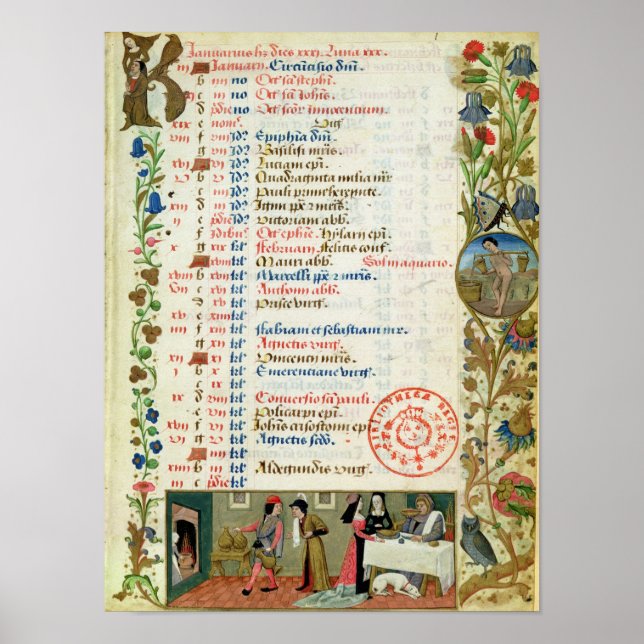 Januarius hz dies xxxi Luna xxx.
iii Januarij. Circumcisio dm̄
b iiii no Oct̄ sc̄i stephi.
xi c iii no Oct̄ sc̄i Johis.
d pdie no Oct̄ scōr innocentium.
xix e non.
viii f viii id9 Epiphīa dm̄.
g vii id9 Basilissi mr̄is.
xvi vi id9 Luciani ep̄i.
v b v id9 Quadraginta milia mr̄
c iiii id9 Pauli primi heremite.
d iii id9
ii e pdie id9 Victoriani abb.
f Idibus Oct̄ ephie. Hylarii ep̄i.
x g xix kl Februarij. Felicis conf.
xviii kl Mauri abb. Sol in aquario.
xviii b xvii kl Marcelli pp̄e z mr̄is.
vii c xvi kl Anthonii abb.
d xv kl Prisce virḡ.
xv e xiiii kl
iiii f xiii kl Fabiani et sebastiani mr̄.
g xii kl Agnetis virḡ.
xii xi kl Vincentii mr̄is.
i b x kl Emerentiane virḡ.
c ix kl
ix d viii kl Conversio sc̄i pauli.
e vii kl Policarpi ep̄i.
xvii f vi kl Johis crisostomi ep̄i
vi g v kl Agnetis scdō.
iiii kl
xiiii b iii kl Aldegundis virḡ.
iii c pdie kl
BIBLIOTHECÆ REGIÆ